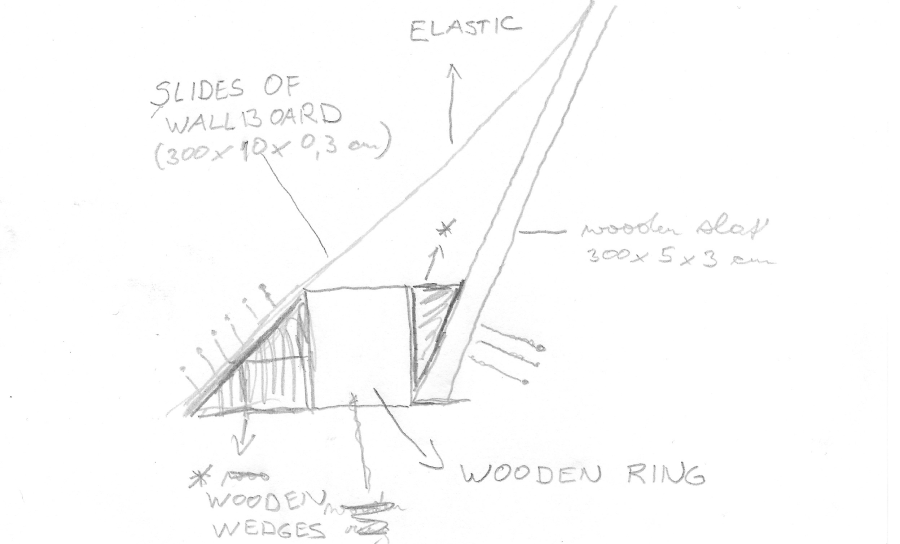 ELASTIC
SLIDES OF
WALLBOARD
(300x10x0,3 cm)
*
wooden slat
300x5x3 cm
WOODEN RING
*
WOODEN
WEDGES